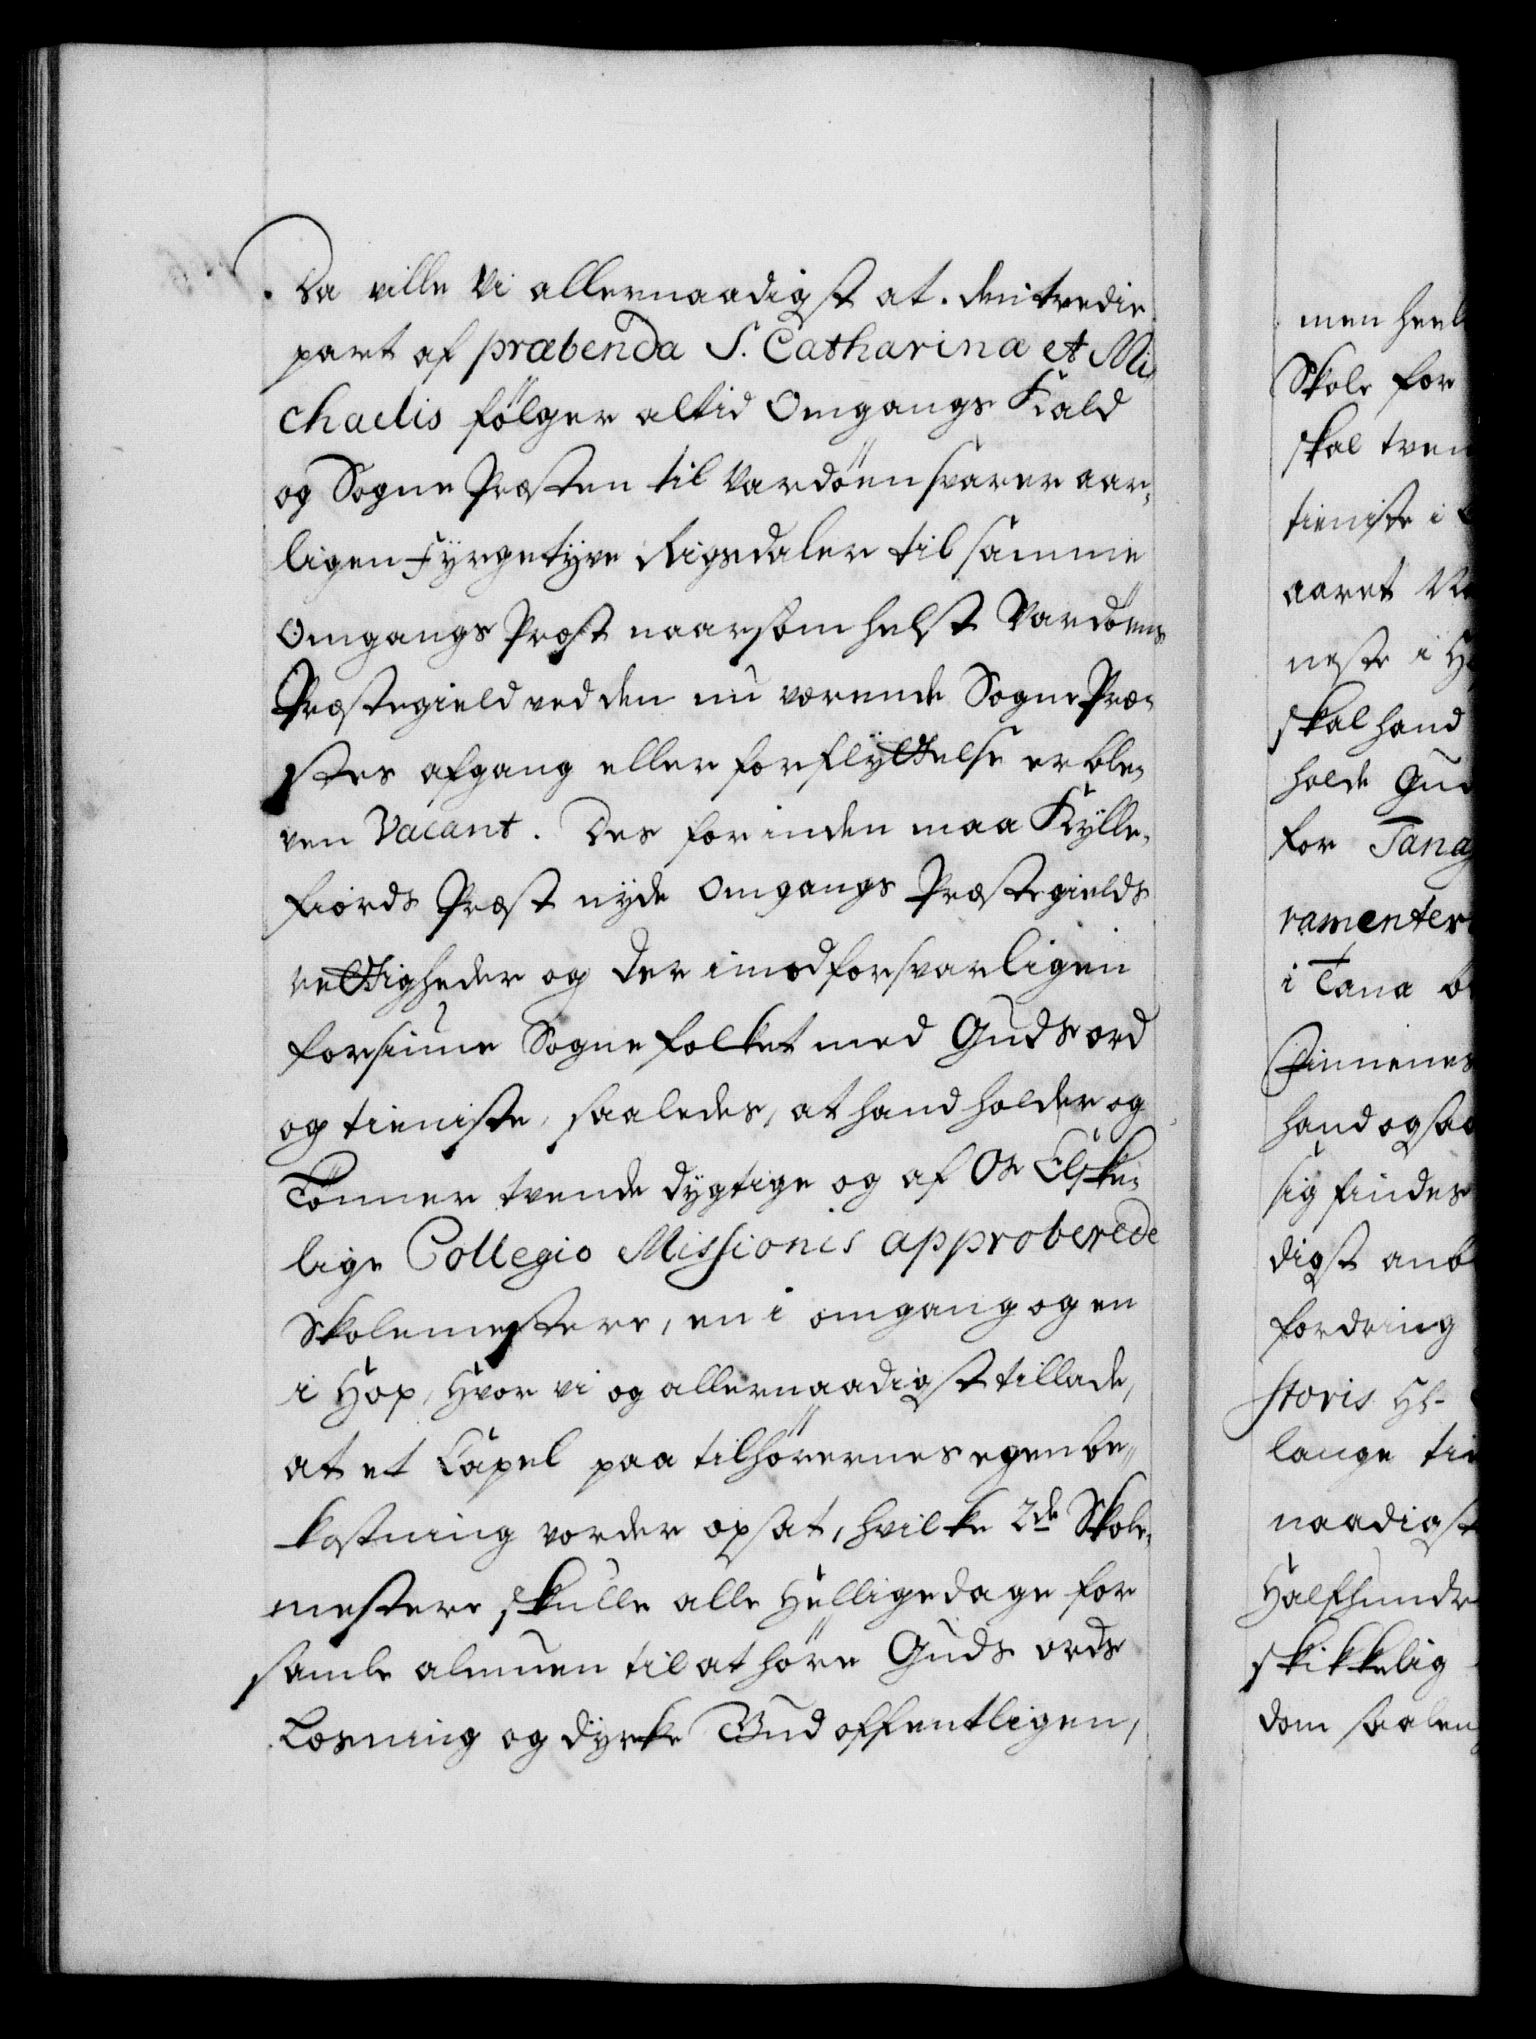 Da ville Vi allernaadigst at den tredie
part af præbenda S. Catharinæ et Mi
chaelis fölger altid Omgangs Kald
og Sogne Præsten til Vardöen svarer aar¬
ligen Fyrgetyve Rigsdaler til samme
Omgangs Præst naarsomhelst Vardöens
Præstegield ved den nu værende Sogne Præ¬
stes afgang eller forflyttelse er ble¬
ven Vacant. Des forinden maa Kylle¬
fiords Præst nyde Omgangs Præstegields
rettigheder og der imod forsvarligen
forsiune Sognefolket med Guds ord
og tieniste, saaledes, at hand holder og
Lönner tvende dygtige og af Os Elske¬
lige Collegio Missionis approberede
Skolemestere, en i omgang og en
i Hop, Hvor vi og allernaadigst tillade,
at et Capel paa tilhörernes egen be¬
kostning vorder opsat, hvilke 2de Skole¬
mestere skulle alle Helligedage for
samle almuen til at höre Guds ords
Læsning og dyrke Gud offentligen,
men heel
Skole for
skal tven
tieniste i
aaret
neste i
skal hand
holde Gud
for Tana
ramenter
i Tana
Finnenes
hand ogsaa
sig findes
digst anb
fordring
storis
lange tie
naadigst
Halfhundr
skikkelig
dom saalen